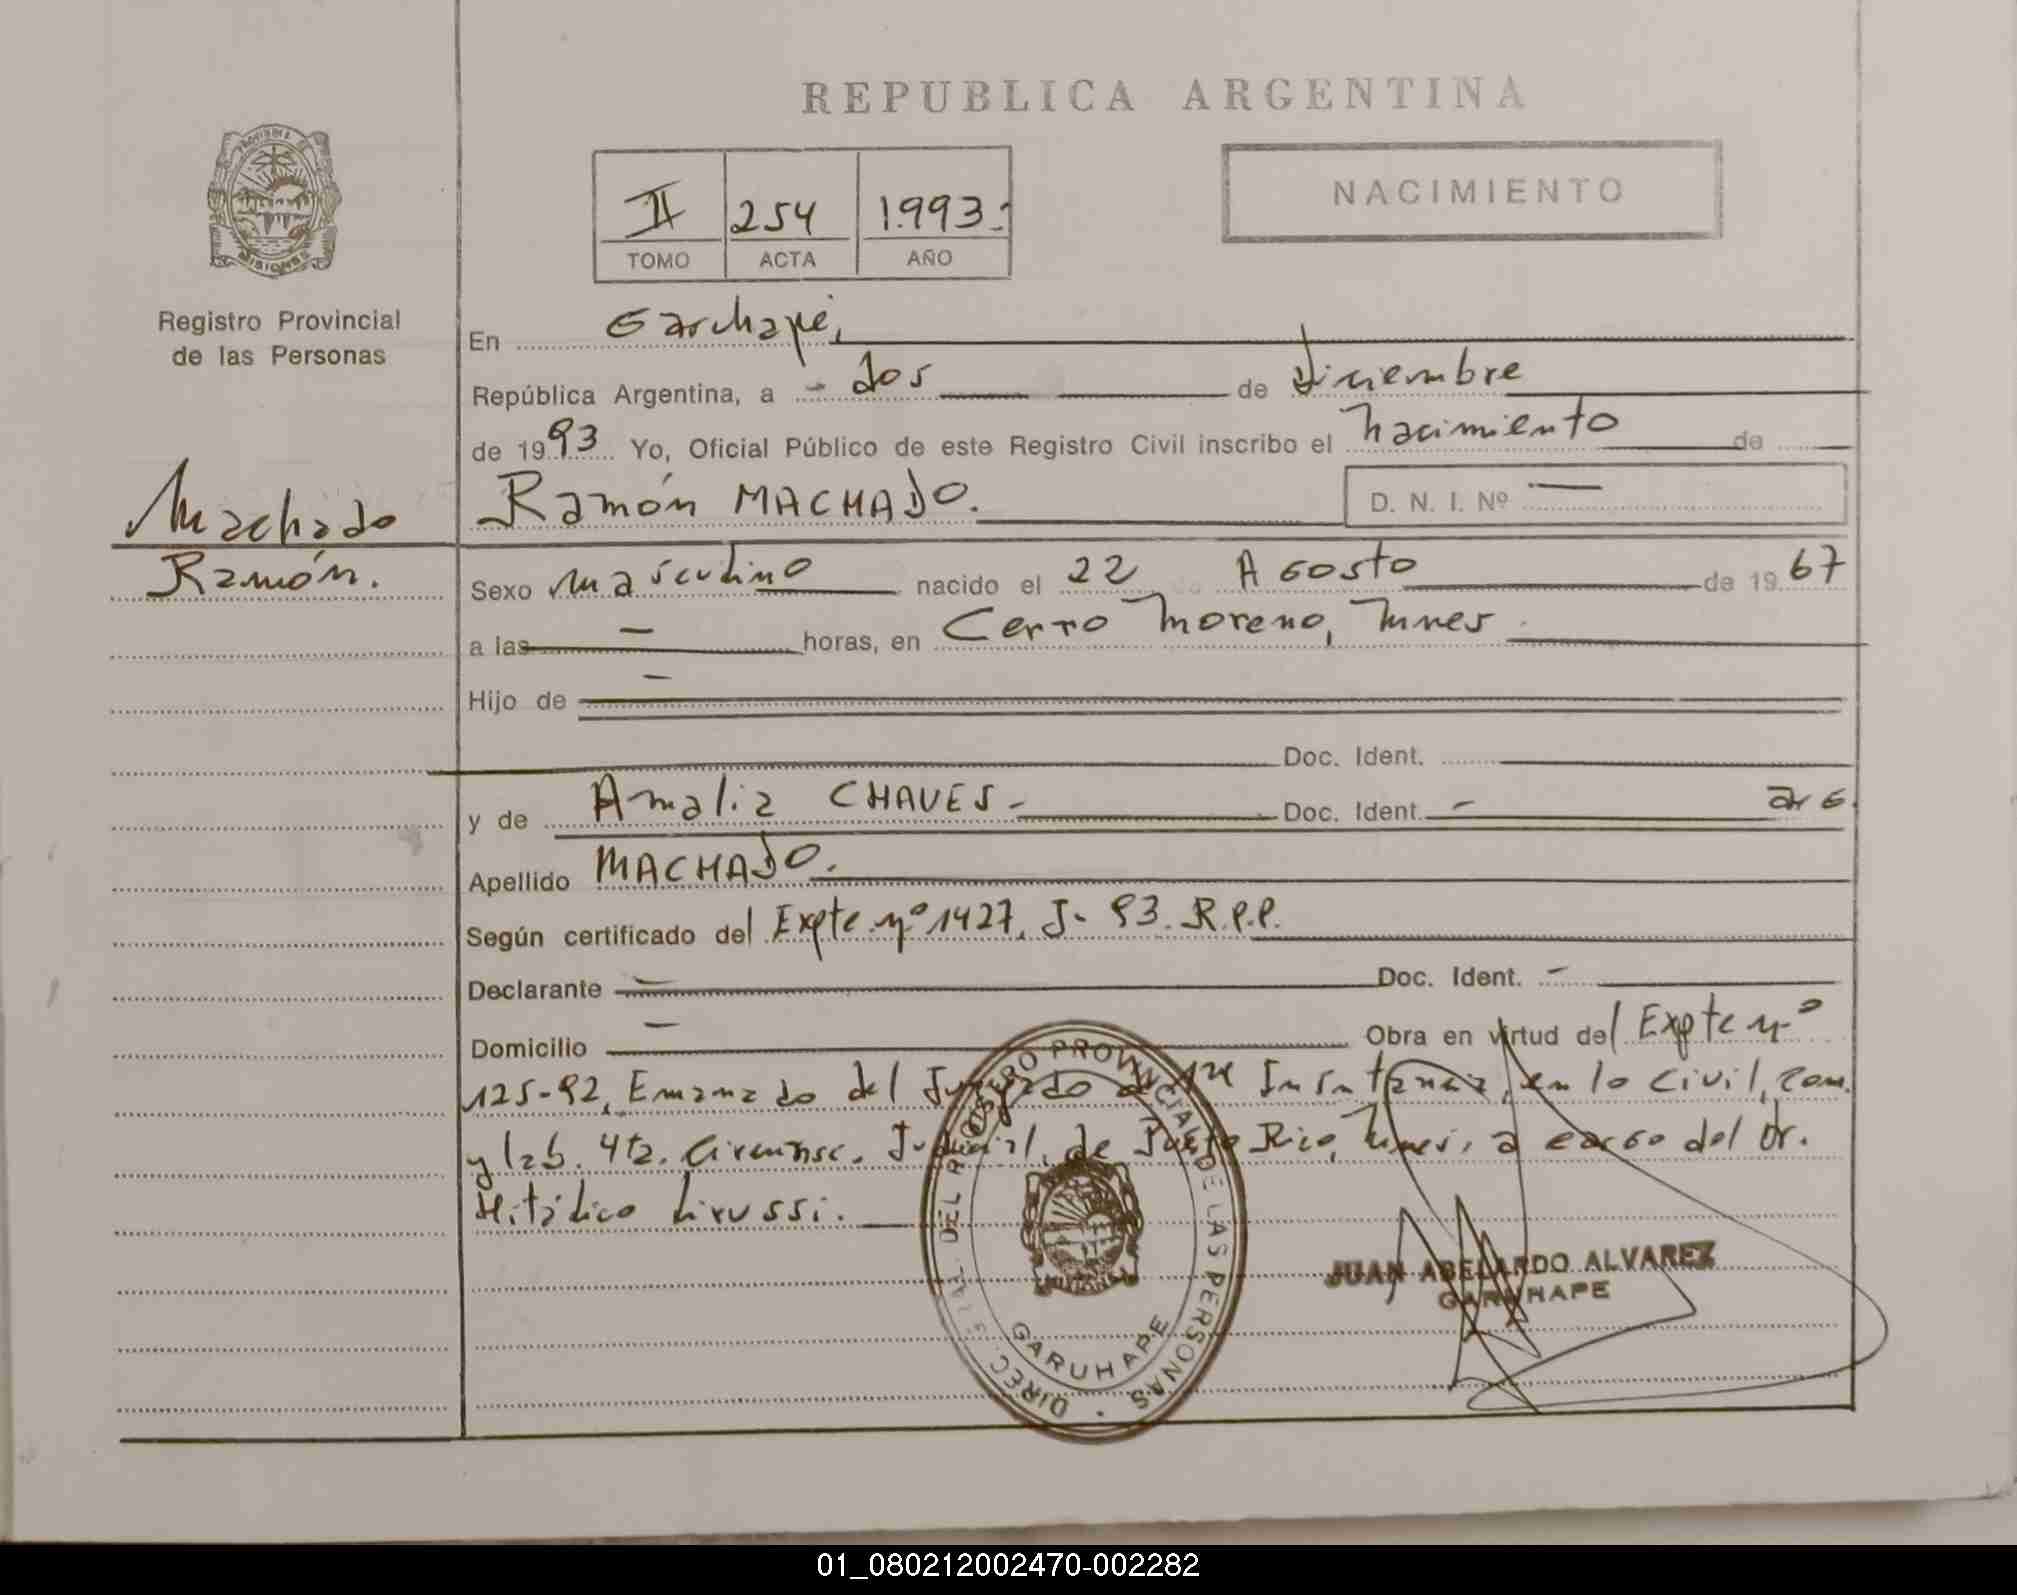 REPUBLICA ARGENTINA
PROVINCIA DE MISIONES
II 254 1.993.-
TOMO ACTA AÑO
NACIMIENTO
Registro Provincial
de las Personas
Machado
Ramón.
En Garuhapé,
República Argentina, a - dos de Diciembre
de 1993 Yo, Oficial Público de este Registro Civil inscribo el nacimiento de
Ramón MACHADO. D. N. I. Nº —
Sexo masculino nacido el 22 de Agosto de 1967
a las — horas, en Cerro Moreno, Mnes.
Hijo de —
Doc. Ident.
y de Amalia CHAVES.- Doc. Ident. - arg.
Apellido MACHADO.
Según certificado del Expte. nº 1427, J- 93. R.P.P.
Declarante — Doc. Ident. -
Domicilio — Obra en virtud del Expte nº
125-92, Emanado del Juzgado de 1ra Instancia, en lo Civil, Com.
y Lab. 4ta. Circunsc. Judicial, de Puerto Rico, Mnes, a cargo del Dr.
DIREC. GRAL. DEL REGISTRO PROVINCIAL DE LAS PERSONAS
GARUHAPE
JUAN ABELARDO ALVAREZ
GARUHAPE
01_080212002470-002282